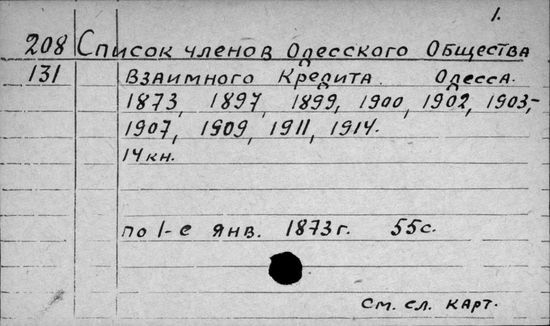 1.
208 Список членов Одесского Общества
131 Взаимного Кредита. Одесса.
1873, 1897, 1899, 1900, 1902, 1903,-
1907, 1909, 1911, 1914.
14 кн.
по 1-е янв. 1873 г. 55 с.
См. сл. карт.